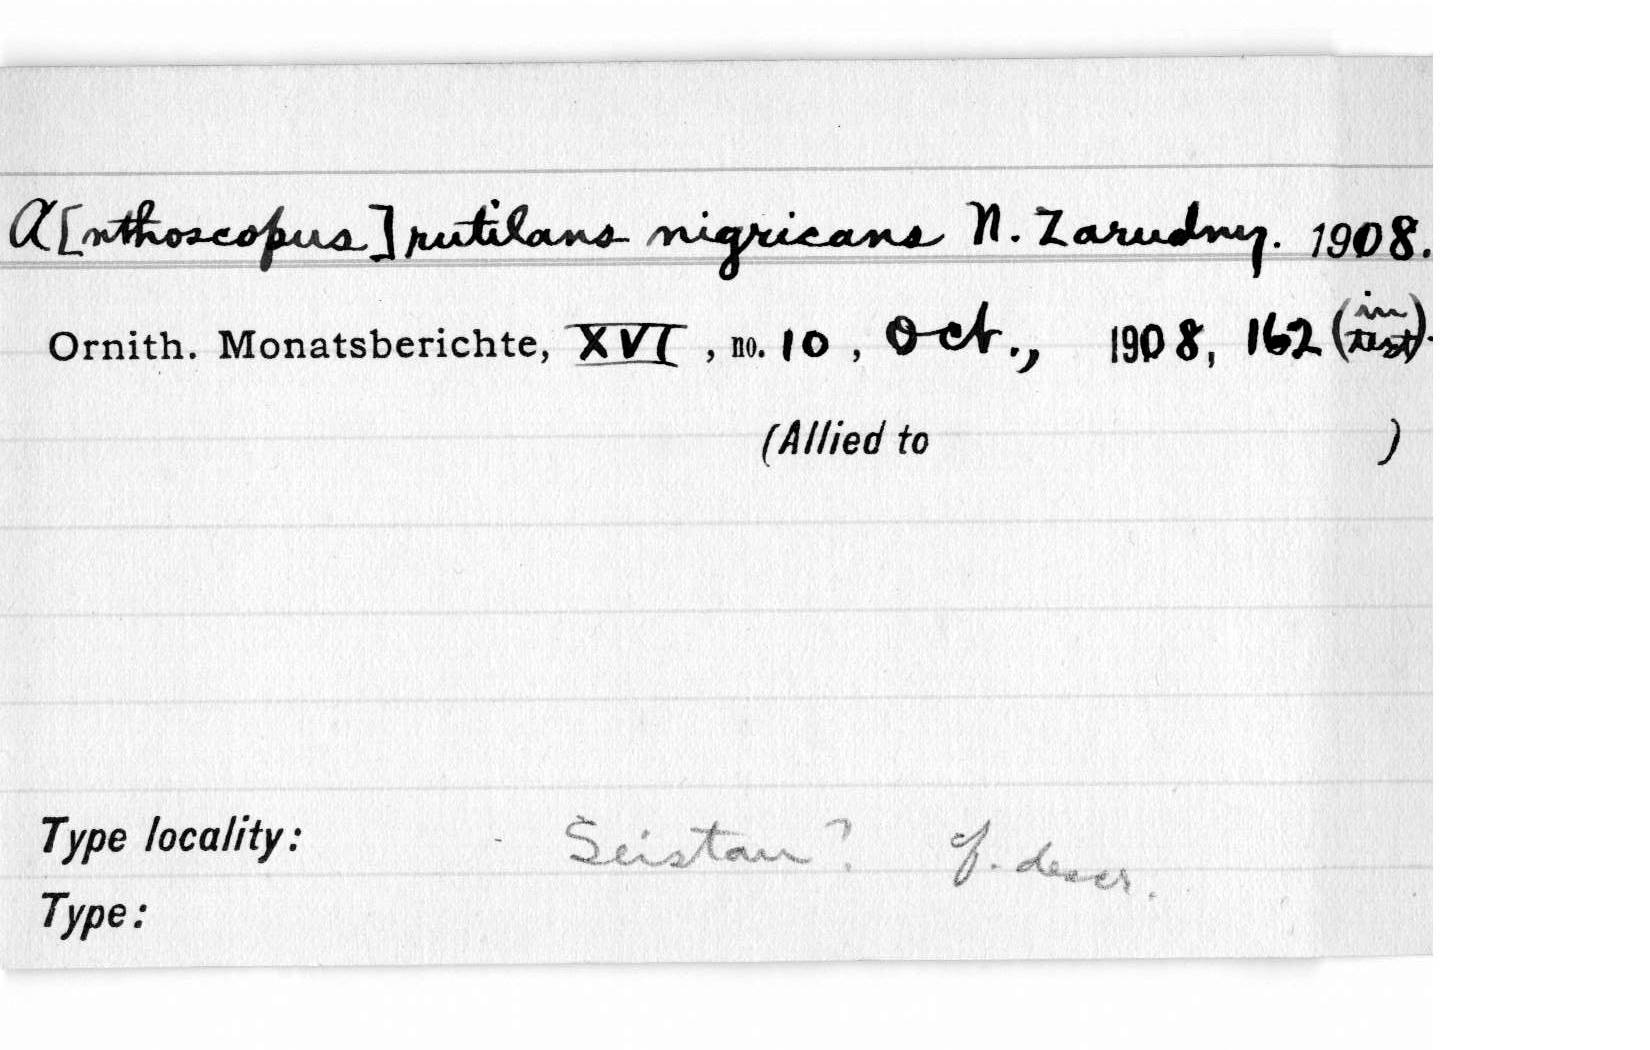 A[nthoscopus] rutilans nigricans N. Zarudny. 1908.
Ornith. Monatsberichte, XVI, no. 10, Oct., 1908, 162 (in text).
(Allied to )
Type locality: - Seistan? cf. descr.
Type: